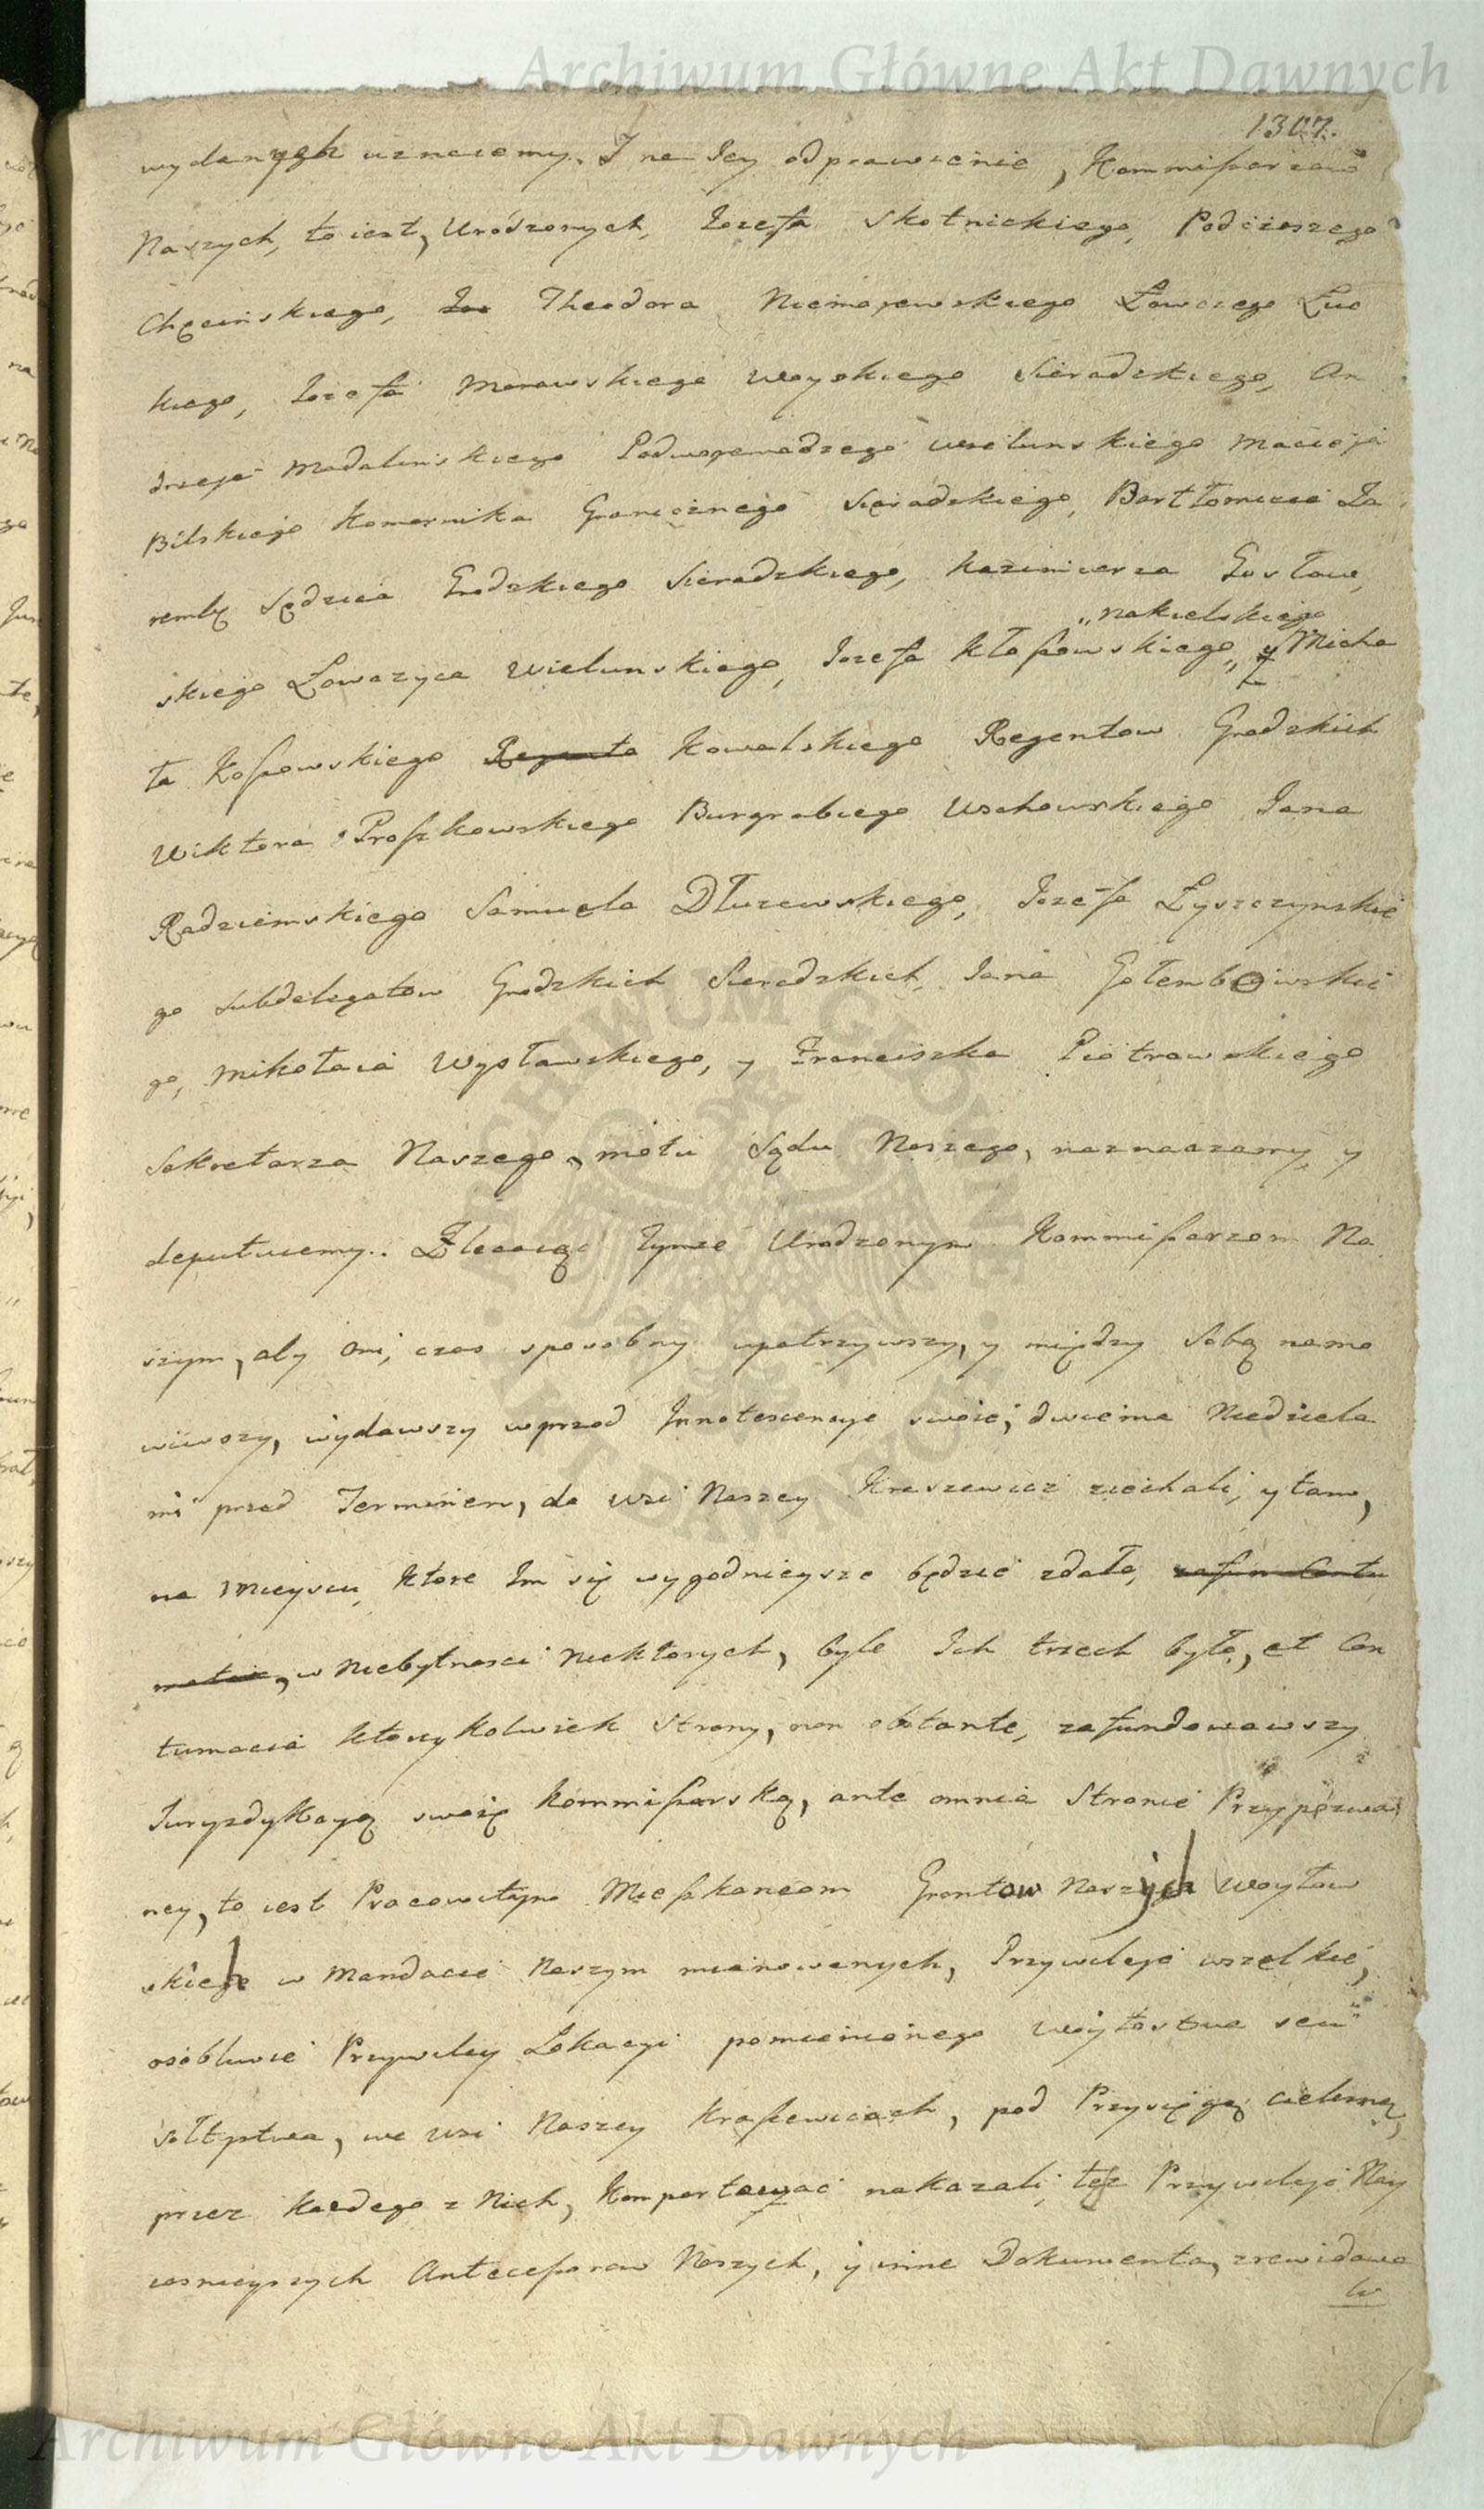 Archiwum Główne Akt Dawnych
1307.
wydanych uznaiemy. I na Iey odprawienie, Kommissarzow
Naszych, to iest, Urodzonych, Iozefa Skotnickiego, Podczaszego
Chęcinskiego, Theodora Niemojewskiego Łowczego Łuc
kiego, Iozefa Morawskiego Woyskiego Sieradzkiego, An
drzeja Madalinskiego Podwojewodzego Wielunskiego Macieja
Bilskiego Komornika Granicznego Sieradzkiego, Bartłomieia Za
remby Sędzica Grodzkiego Sieradzkiego, Kazimierza Gosław,
„nakielskiego
skiego Łowczyca Wielunskiego, Iozefa Kłossowskiego„ y Micha
ła Kossowskiego Regenta Kowalskiego Regentow Grodzkich
Wiktora Proszkowskiego Burgrabiego Wschowskiego Iana
Radziemskiego Samuela Dłuzewskiego, Iozefa Łyszczynskie
go Subdelegatow Grodzkich Sieradzkich, Iana Gołembowskie
go, Mikołaia Wysławskiego, y Franciszka Piotrowskiego
Sekretarza Naszego, motu Sądu Naszego, naznaczamy y
deputuiemy. Zlecaiąc tymze Urodzonym Kommissarzom Na
szym, aby oni, czas sposobny upatrzywszy, y między sobą namo
wiwszy, wydawszy wprzod Innotescencye swoie, dwiema Niedziela
mi przed Terminem, do wsi Naszey Kraszewicz ziechali, y tam,
na mieyscu, ktore Im się wygodnieysze będzie zdało,
w niebytnosci niektorych, byle Ich trzech było, et Con
tumacia ktoreykolwiek strony, non obstante, zafundowawszy
Iuryzdykcyą swoię Kommissarską, ante omnia Stronie Przypozwa
ney, to iest Pracowitym Mieszkancom Grontow Naszych Woytow
skich w Mandacie Naszym mianowanych, Przywileje wszelkie,
osobliwie Przywiley Lokacyi pomienionego Woytostwa seu
sołtystwa, we wsi Naszey Kraszewicach, pod Przysięgą cielesną,
przez kazdego z Nich, komportować nakazali, też Przywileje Nay
iasnieyszych Antecessorow Naszych, y inne Dokumenta, zrewidowa
w
Archiwum Główne Akt Dawnych